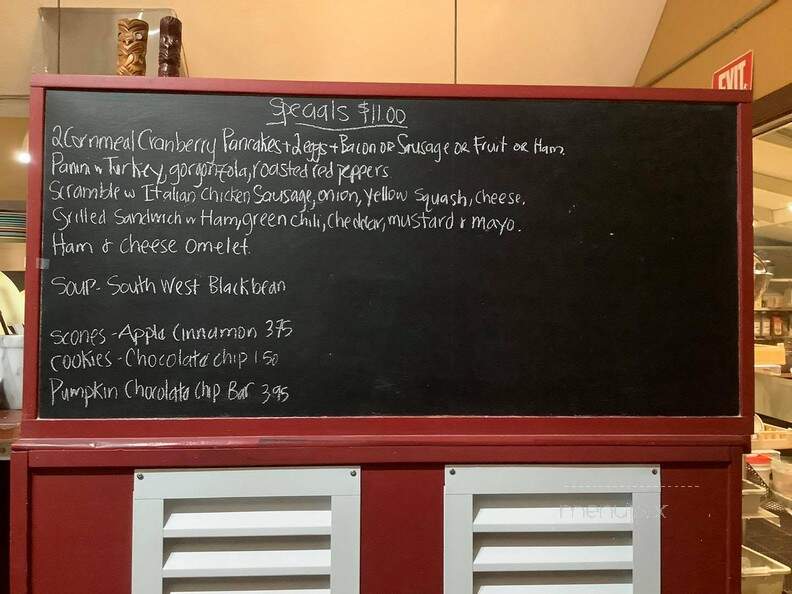 EXIT
Specials $11.00
2 Cornmeal Cranberry Pancakes + 2 eggs + Bacon OR Sausage OR Fruit OR Ham
Panini w Turkey, gorgonzola, roasted red peppers
Scramble w Italian Chicken Sausage, onion, yellow squash, cheese.
Grilled Sandwich w Ham, green chili, cheddar, mustard & mayo.
Ham & cheese Omelet.
Soup- South West Blackbean
Scones - Apple Cinnamon 375
Cookies - Chocolate chip 150
Pumpkin Chocolate Chip Bar 395